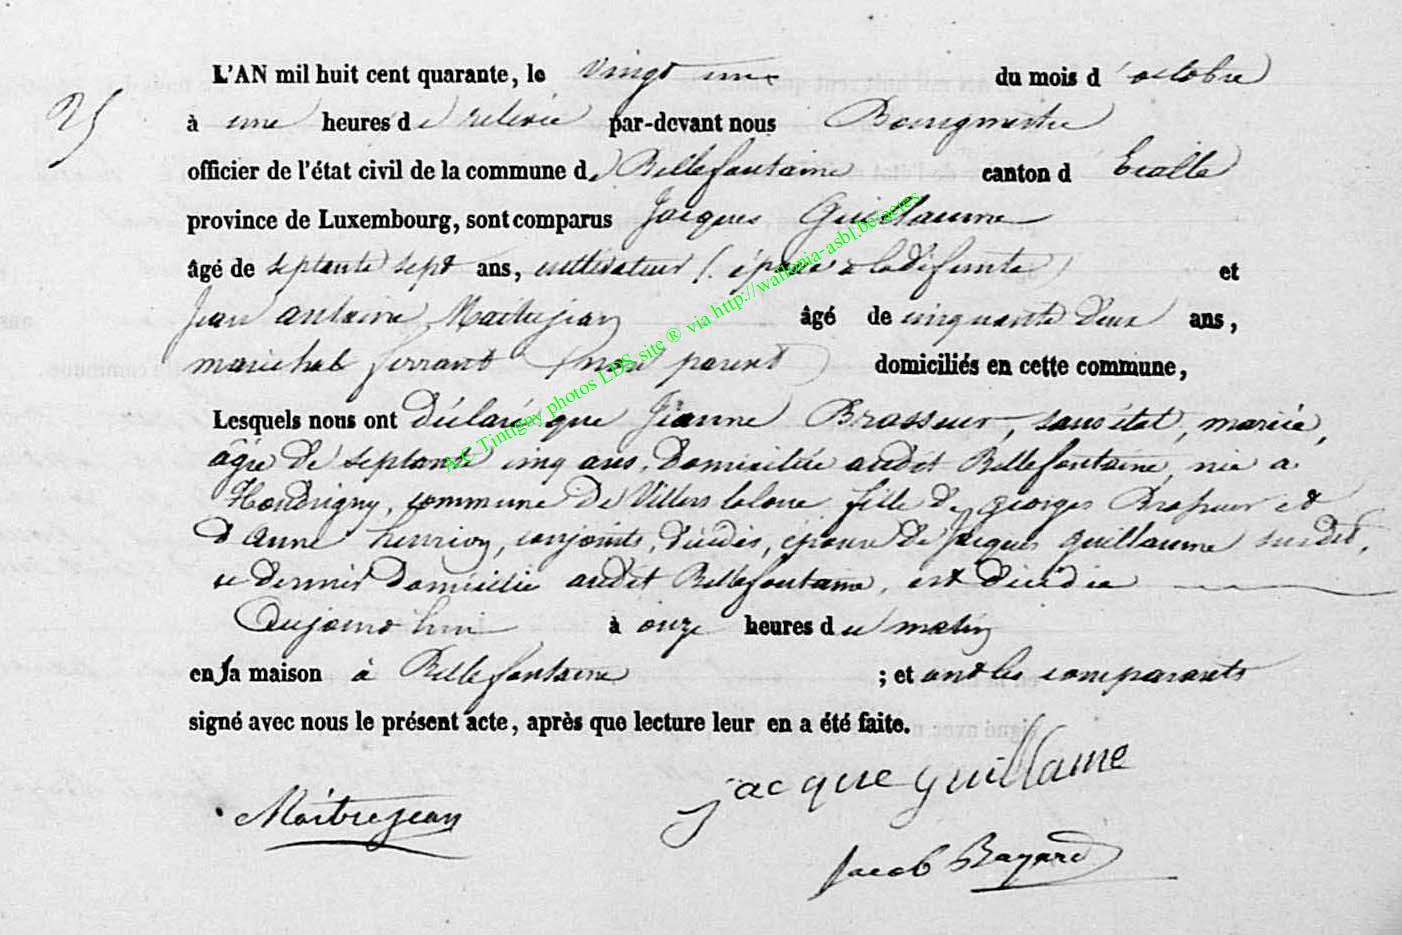 25
L'AN mil huit cent quarante, le vingt une du mois d'octobre
à une heures de relevée par-devant nous Bourgmestre
officier de l'état civil de la commune de Bellefontaine canton d'Etalle
province de Luxembourg, sont comparus Jacques Guillaume
âgé de septante sept ans, cultivateur (époux de la défunte) et
Jean antoine Maitrejean âgé de cinquante deux ans,
marechal ferrant (non parent) domiciliés en cette commune,
Lesquels nous ont déclaré que Jeanne Brasseur, sans état, mariée,
âgée de septante cinq ans, domiciliée audit Bellefontaine, née a
Houdrigny, commune de Villers laloue fille de georges Brasseur et
d'Anne henrion, conjoints, décédés, épouse de Jacques guillaume susdit,
ce dernier domicilié audit Bellefontaine, est décédée
Aujourd'hui à onze heures du matin
en sa maison à Bellefontaine ; et ont les comparants
signé avec nous le présent acte, après que lecture leur en a été faite.
jacque guillame
Maitrejean
Jacob Bayard
A.C Tintigny photos LDS site ® via http://wallonia-asbl.be/actes